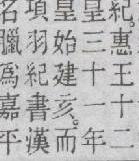 紀惠王十二
皇三十一年
皇始建亥而
項羽紀書漢
名臘爲嘉平